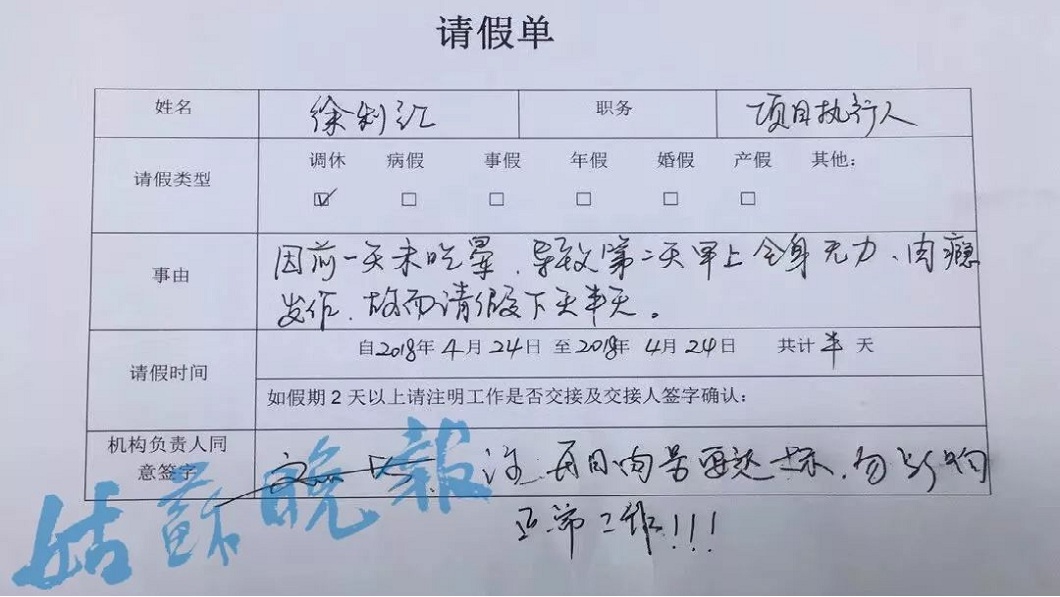 请假单
姓名 徐利汇 职务 项目执行人
请假类型 调休 病假 事假 年假 婚假 产假 其他：
事由 因前一天未吃荤，导致第二天早上全身无力、肉瘾
发作，故而请假下午半天。
请假时间 自2018年4月24日 至2018年4月24日 共计半天
如假期2天以上请注明工作是否交接及交接人签字确认：
机构负责人同
意签字 注：每日肉量要达标，勿影响
正常工作!!!
姑蘇晚報